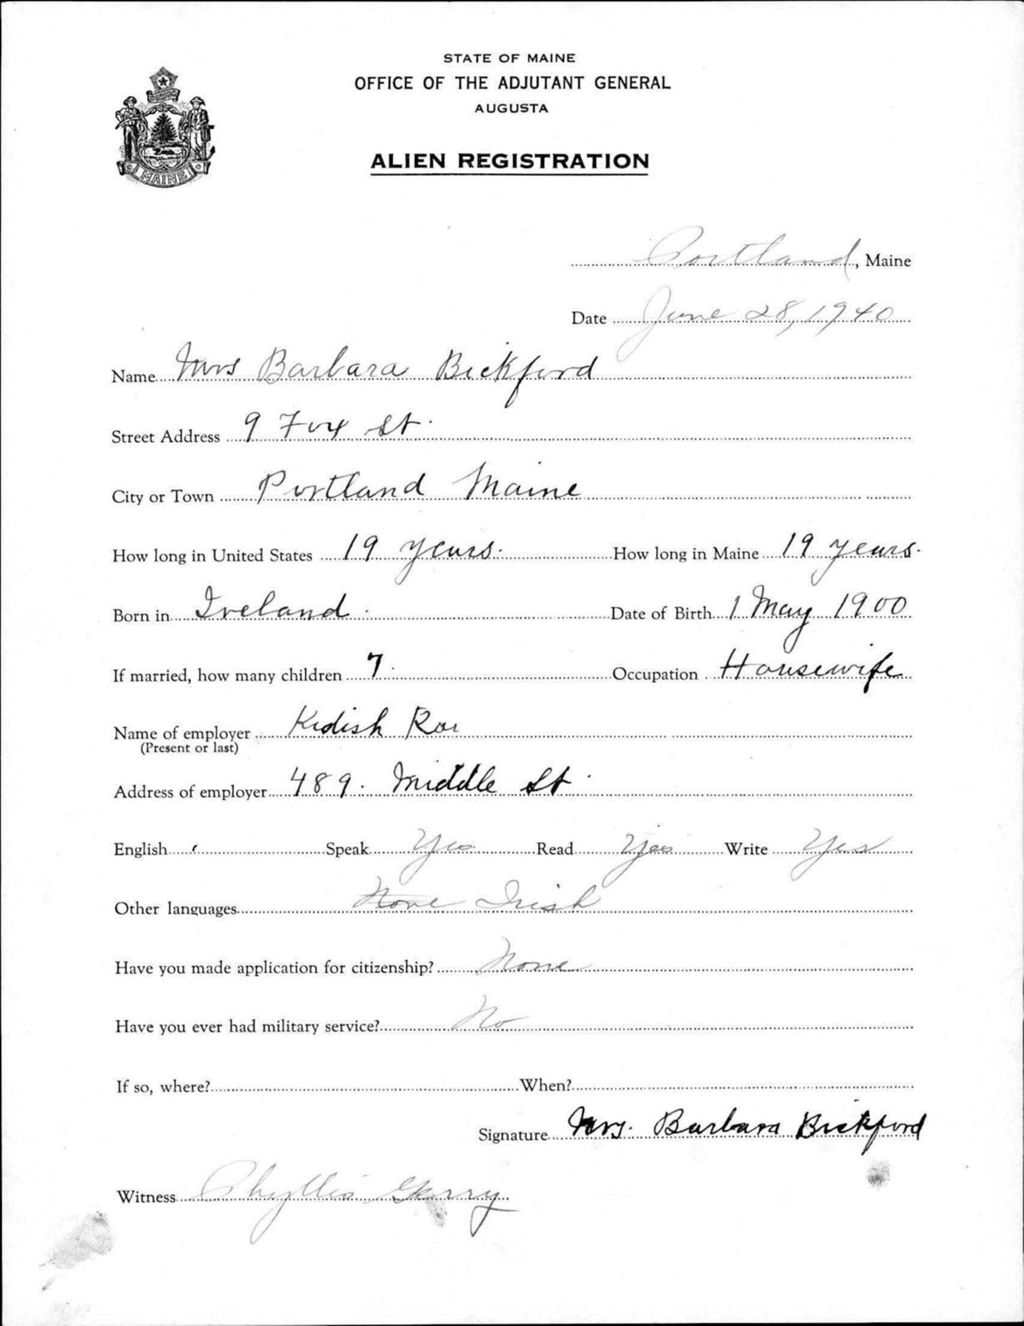 STATE OF MAINE
OFFICE OF THE ADJUTANT GENERAL
AUGUSTA
MAINE
ALIEN REGISTRATION
Portland, Maine
Date June 28, 1940
Name Mrs Barbara Bickford
Street Address 9 Fox St.
City or Town Portland Maine
How long in United States 19 years. How long in Maine 19 years.
Born in Ireland. Date of Birth 1 May 1900
If married, how many children 7. Occupation Housewife
Name of employer
(Present or last)
Address of employer 489. Middle St.
English Speak Yes Read Yes Write Yes
Other languages None Irish
Have you made application for citizenship? None
Have you ever had military service? No
If so, where? When?
Signature Mrs. Barbara Bickford
Witness Phyllis Gerry